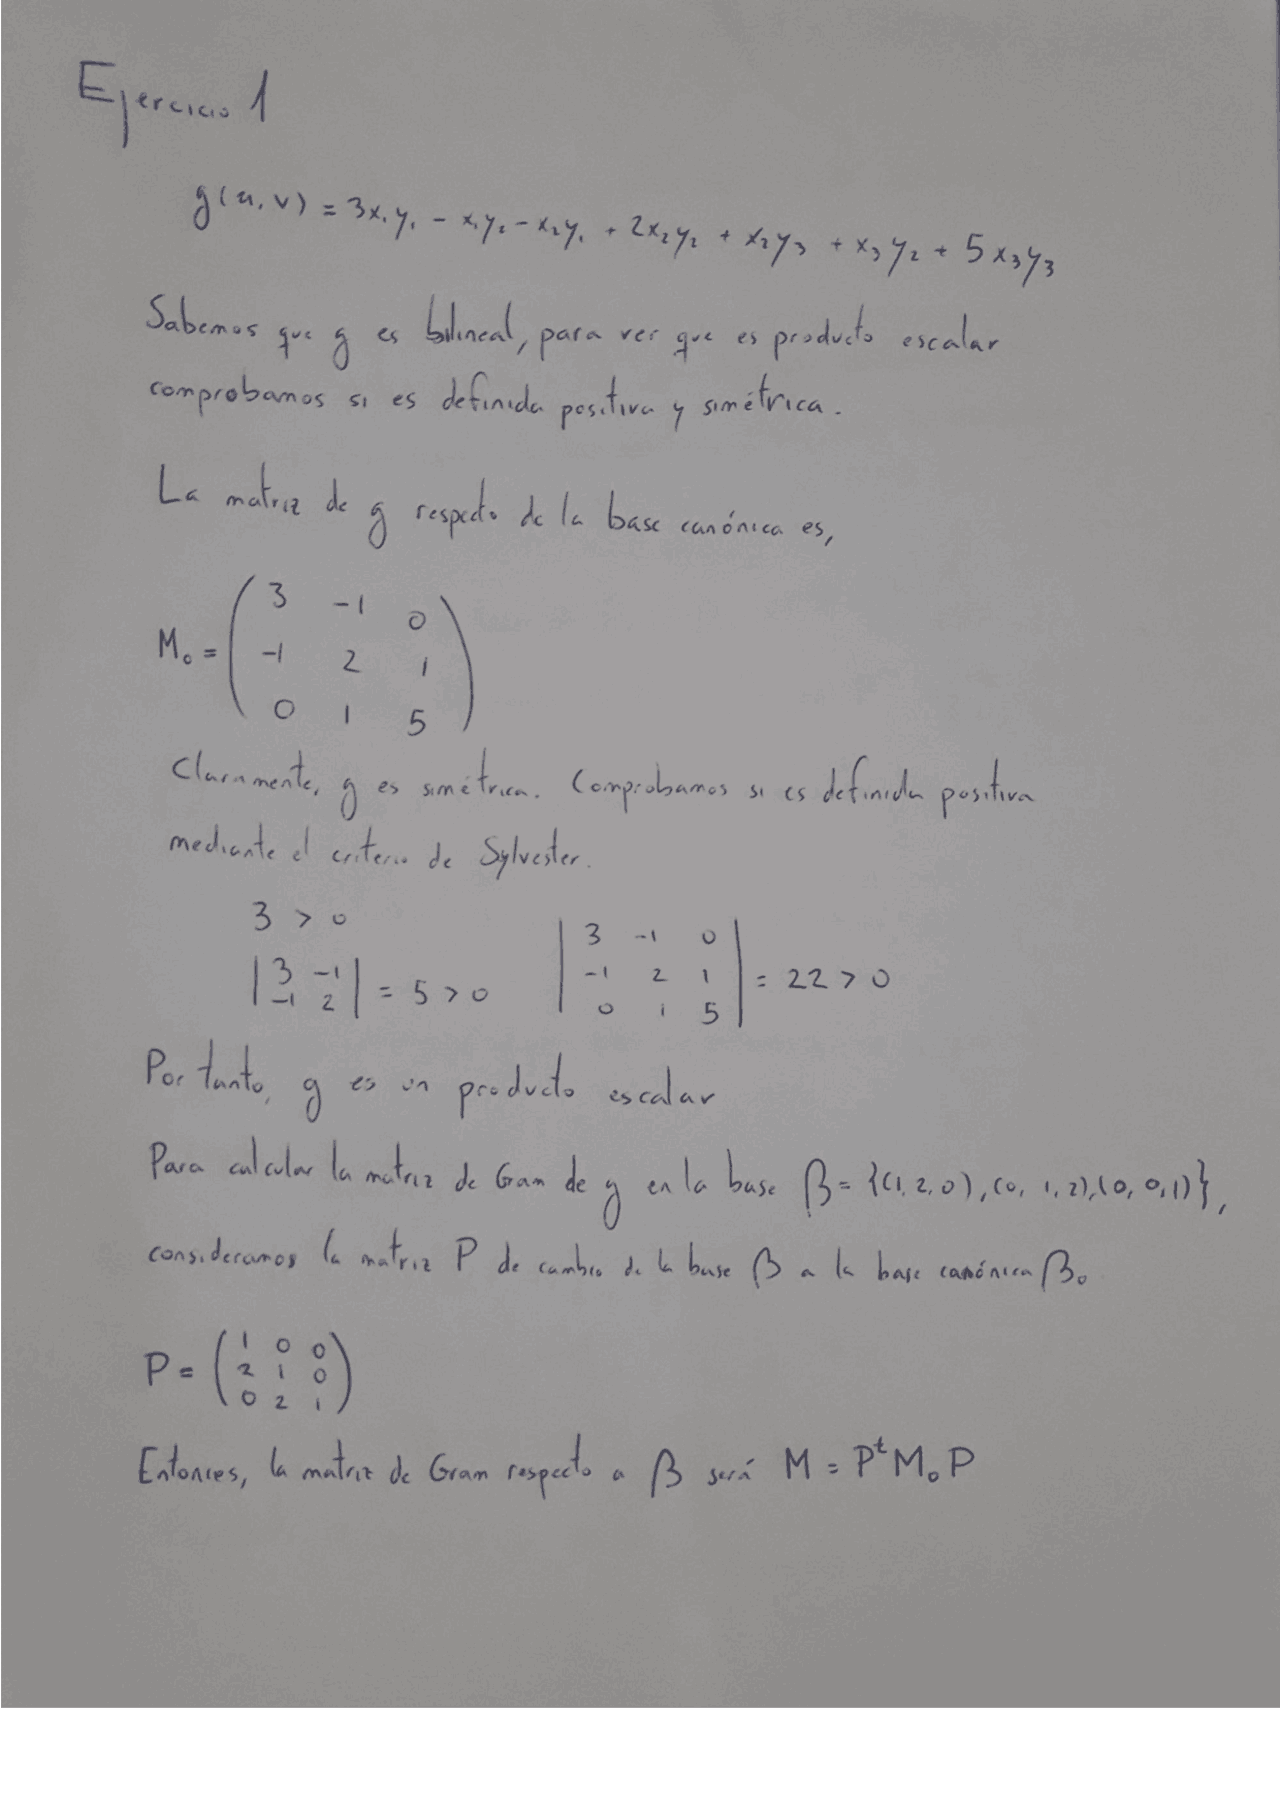 Ejercicio 1
g(u,v) = 3x₁y₁ - x₁y₂ - x₂y₁ + 2x₂y₂ + x₂y₃ + x₃y₂ + 5x₃y₃
Sabemos que g es bilineal, para ver que es producto escalar
comprobamos si es definida positiva y simétrica.
La matriz de g respecto de la base canónica es,
M₀ = ( 3 -1 0
-1 2 1
0 1 5 )
Claramente, g es simétrica. Comprobamos si es definida positiva
mediante el criterio de Sylvester.
3 > 0
| 3 -1
-1 2 | = 5 > 0
| 3 -1 0
-1 2 1
0 1 5 | = 22 > 0
Por tanto, g es un producto escalar
Para calcular la matriz de Gram de g en la base β = {(1, 2, 0), (0, 1, 2), (0, 0, 1)},
consideramos la matriz P de cambio de la base β a la base canónica β₀
P = ( 1 0 0
2 1 0
0 2 1 )
Entonces, la matriz de Gram respecto a β será M = PᵗM₀P